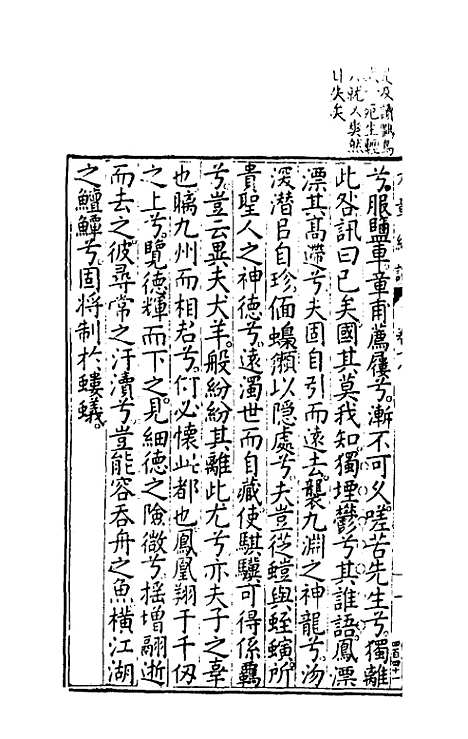 讀鵩鳥
死生輕
就人爽然
失矣
兮。服鹽車章甫薦屨兮。漸不可久。嗟苦先生兮。獨離
此咎訊曰已矣。國其莫我知。獨堙鬱兮。其誰語。鳳漂
漂其高遰兮。夫固自引而遠去。襲九淵之神龍兮。沕
深潛㠯自珍。偭蟂獺以隱處兮。夫豈從螘與蛭螾。所
貴聖人之神德兮。遠濁世而自藏。使騏驥可得係羈
兮。豈云異夫犬羊。般紛紛其離此尤兮。亦夫子之辜
也。瞝九州而相君兮。何必懷此都也。鳳凰翔于千仞
之上兮。覽德輝而下之。見細德之險微兮。搖增翮逝
而去之。彼尋常之汙瀆兮。豈能容吞舟之魚。橫江湖
之鱣鱏兮。固將制於螻蟻。